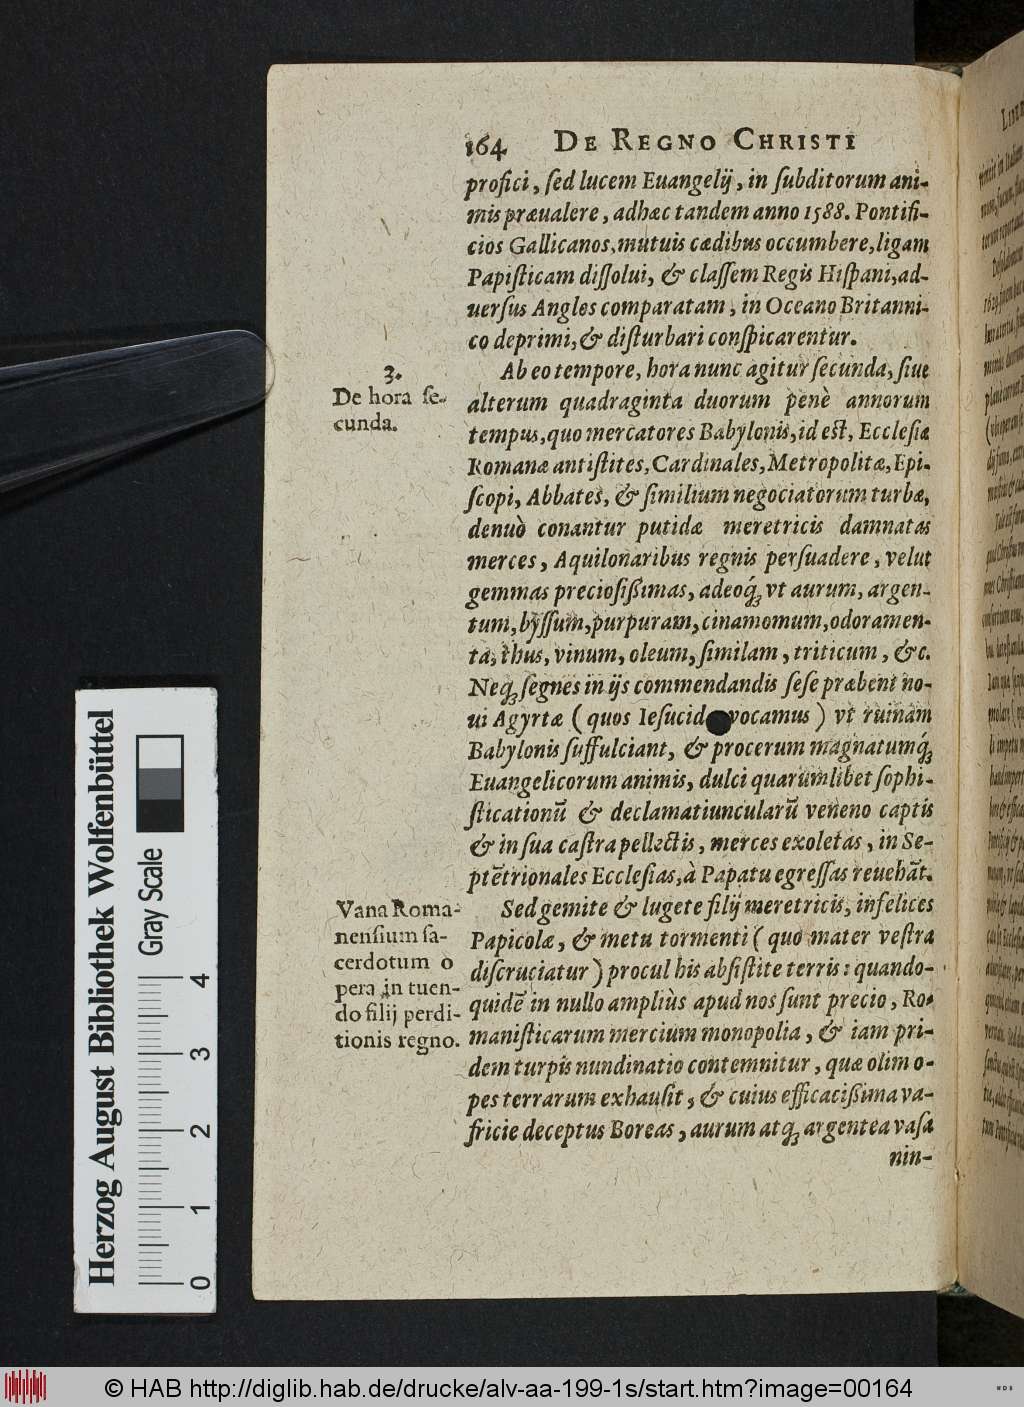 164 DE REGNO CHRISTI
profici, sed lucem Euangelij, in subditorum ani-
mis præualere, adhæc tandem anno 1588. Pontifi-
cios Gallicanos, mutuis cædibus occumbere, ligam
Papisticam dissolui, & classem Regis Hispani, ad-
uersus Anglos comparatam, in Oceano Britanni-
co deprimi, & disturbari conspicarentur.
3.
De hora se-
cunda.
Ab eo tempore, hora nunc agitur secunda, siue
alterum quadraginta duorum penè annorum
tempus, quo mercatores Babylonis, id est, Ecclesiæ
Romanæ antistites, Cardinales, Metropolitæ, Epi-
scopi, Abbates, & similium negociatorum turbæ,
denuò conantur putidæ meretricis damnatas
merces, Aquilonaribus regnis persuadere, velut
gemmas preciosißimas, adeoq́; vt aurum, argen-
tum, byssum, purpuram, cinamomum, odoramen-
ta, thus, vinum, oleum, similam, triticum, &c.
Neq; segnes in ijs commendandis sese præbent no-
ui Agyrtæ (quos Iesucid vocamus) vt ruinam
Babylonis suffulciant, & procerum magnatumq́;
Euangelicorum animis, dulci quarumlibet sophi-
sticationū & declamatiuncularū veneno captis
& in sua castra pellectis, merces exoletas, in Se-
ptētrionales Ecclesias, à Papatu egressas reuehāt.
Vana Roma-
nensium sa-
cerdotum o
pera in tuen-
do filij perdi-
tionis regno.
Sed gemite & lugete filij meretricis, infelices
Papicolæ, & metu tormenti (quo mater vestra
discruciatur) procul his absistite terris: quando-
quidē in nullo ampliùs apud nos sunt precio, Ro-
manisticarum mercium monopolia, & iam pri-
dem turpis nundinatio contemnitur, quæ olim o-
pes terrarum exhausit, & cuius efficacißima va-
fricie deceptus Boreas, aurum atq; argentea vasa
nin-
Herzog August Bibliothek Wolfenbüttel
Gray Scale
0 1 2 3 4
© HAB http://diglib.hab.de/drucke/alv-aa-199-1s/start.htm?image=00164